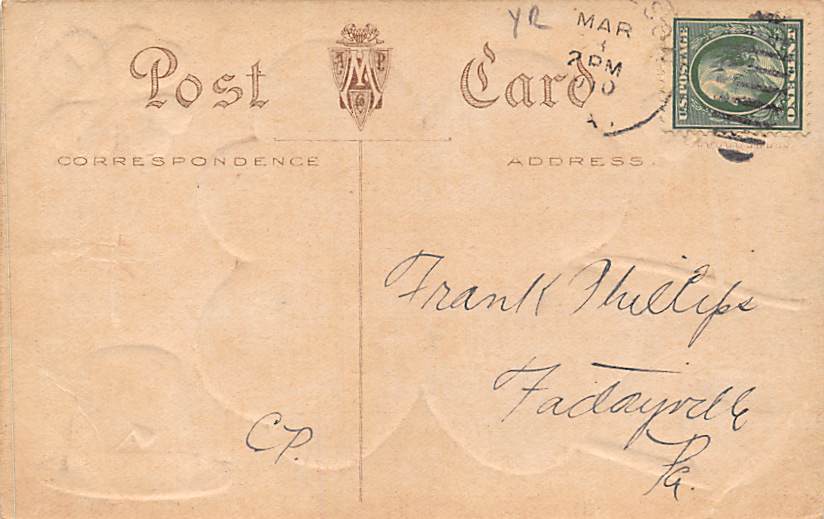 YR
MAR
2 PM
U.S. POSTAGE
ONE CENT
Post Card
A M P
CORRESPONDENCE
ADDRESS.
Frank Phillips
Fadayville
Pa.
CP.